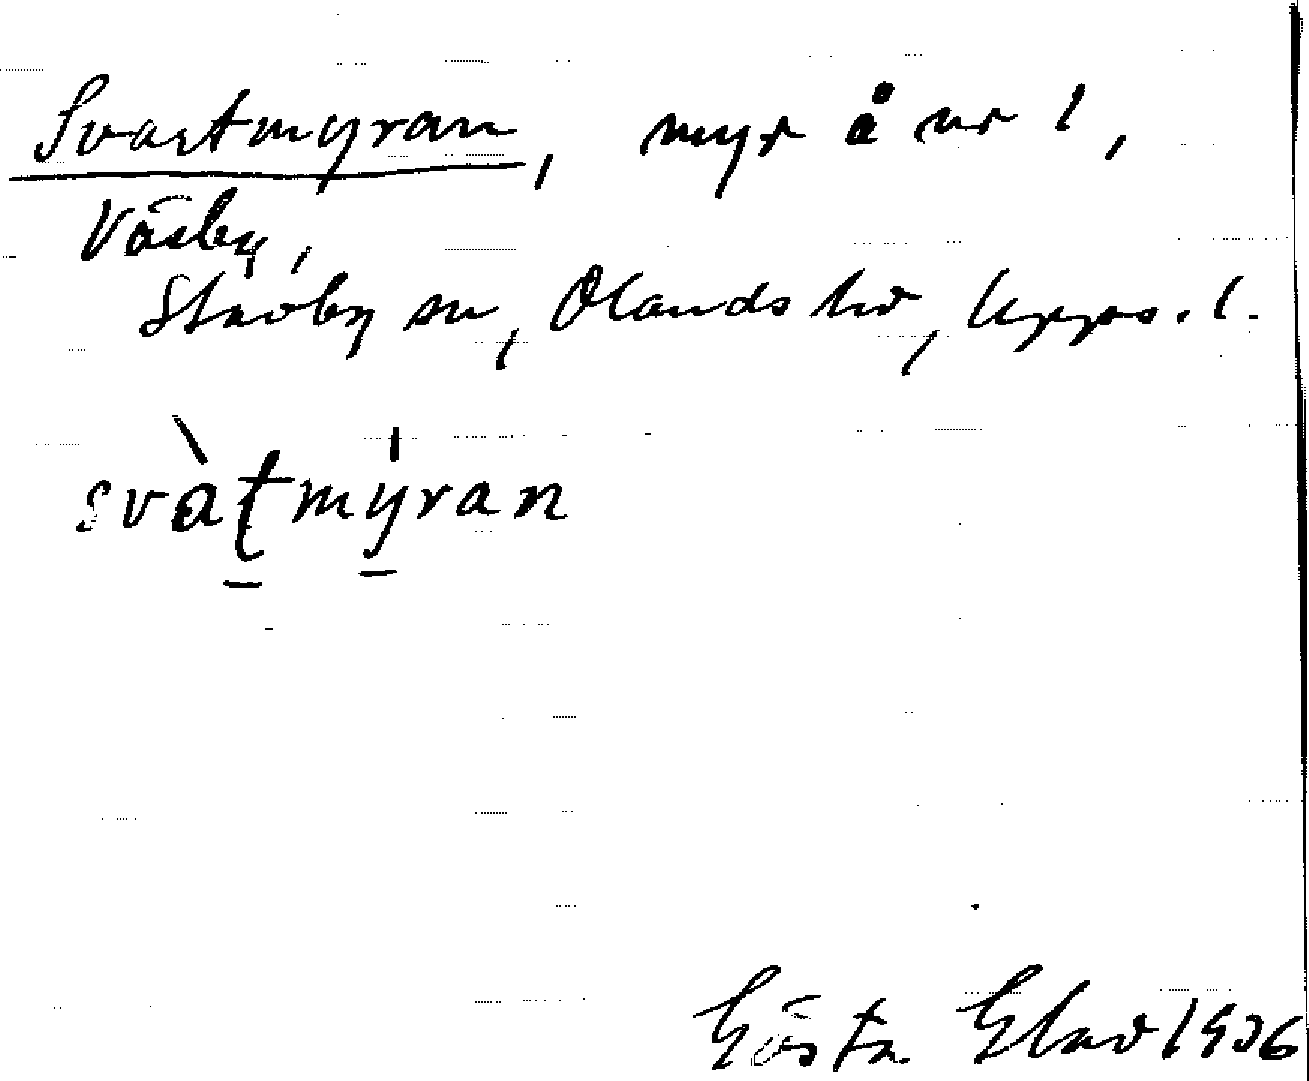 Svartmyran, myr å nr 1,
Väsby,
Stavby sn, Olands hd, Upps. l.
svàtmýran
Gösta Elav 1936